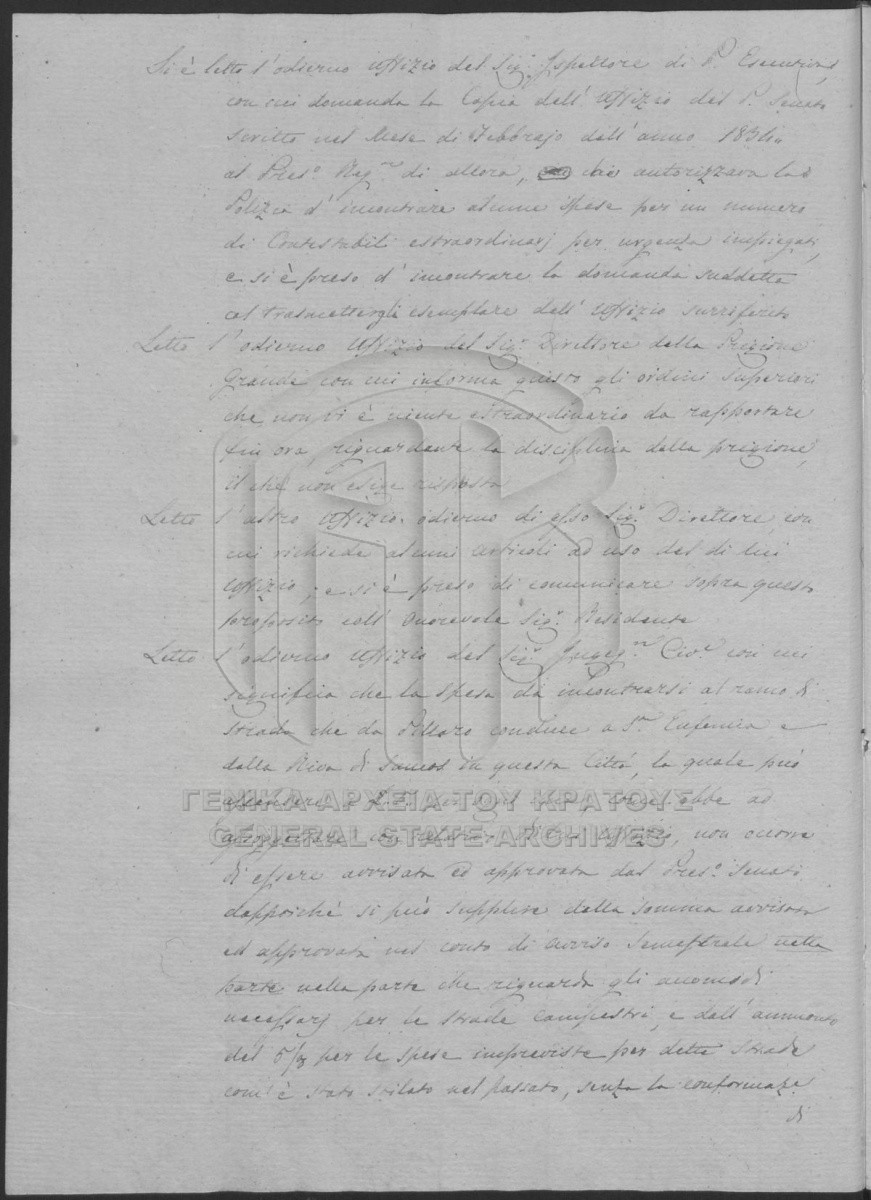 Si è letto l'odierno Uffizio del Sig.r Ispettore di P. Esecuzione,
con cui domanda la Copia dell' Uffizio del P. Senato
scritto nel Mese di Febbrajo dell'anno
al Pres.o Regg.te di allora, che autorizzava la
Polizia d' incontrare alcune spese per un numero
di Contestabili estraordinarj per urgenza impiegati,
e si è preso d' incontrare la domanda suddetta
col trasmettergli esemplare dell' Uffizio surriferito
Letto l'odierno Uffizio del Sig.r Direttore della Prigione
Grande con cui informa questo gli ordini superiori
che non vi è niente estraordinario da rapportare
fin ora, riguardante la disciplina della prigione,
il che non esige risposta
Letto l'altro Uffizio odierno di esso Sig.r Direttore, con
cui richiede alcuni articoli ad uso del di lui
Uffizio, e si è preso di comunicare sopra questo
proposito coll' Onorevole Sig.r Residente
Letto l'odierno Uffizio del Sig.r Ingeg.re Civ.e con cui
significa che la spesa da incontrarsi al ramo di
strada che da Pillaro conduce a S.ta Eufemia e
dalla Riva di in questa Città, la quale può
ascendere a ebbe ad
Uffizio, non occorre
di essere avvisata ed approvata dal Pres.o Senato
dappoichè si può supplire dalla somma avvisata
ed approvata nel conto di avviso Semestrale nella
parte nella parte che riguarda gli accomodi
necessarj per le strade campestri, e dall' aumento
del 5/ per le spese impreviste per dette strade
com' è stato stilato nel passato, senza la conformaze
di
ΓΕΝΙΚΑ ΑΡΧΕΙΑ ΤΟΥ ΚΡΑΤΟΥΣ
GENERAL STATE ARCHIVES